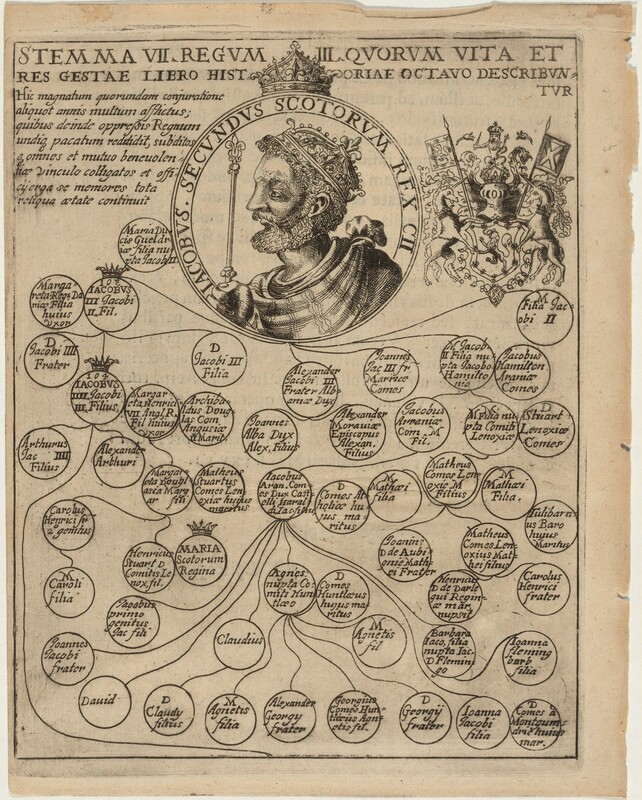 STEMMA VII. REGUM III. QVORVM VITA ET
RES GESTAE LIBRO HISTORIAE OCTAVO DESCRIBVN-
TVR
Hic magnatum quorundam conjuratione
aliquot annis multum afflictus;
quibus deinde oppressis Regnum
undiq pacatum reddidit, subditos
q, omnes et mutuo benevolen-
tiæ vinculo colligatos et offi
cij erga se memores tota
reliqua ætate continuit
IACOBVS. SECVNDVS SCOTORVM REX CII
Maria Du
cis Gueldr
iæ filia nu
pta Jacob II
Marga
reta Regi Da
niæ Filia
huius
vxor
103
IACOBVS
III Jacobi
II, Fil.
M
Filia Jac
obi II
D
Jacobi IIII
Frater
104
IACOBVS
IIII, Jacobi
III, Filius
D
Jacobi III
Filia
Alexander
Jacobi III
Frater Alb
aniæ Dux
Joannes
Jac III fr
Marriæ
Comes
M Jacob
II Filia nu
pta Jacobo
Hamilto
nio
Jacobus
Hamilton
Araniæ
Comes
Margar
eta Henrici
VII Angl. R.
Fil huius
vxor
Archiba
ldus Doug
las Com
Angusiæ
Marit.
Joannes
Alba Dux
Alex, Filius
Alexander
Moraviæ
Episcopus
Alexan.
Filius
Jacobus
Armaniæ
Com. M
Fil.
M filia nu
pta Comiti
Lenoxiæ
D
Stuart
Lenoxiæ
Comes
Arthurus
Jac IIII
Filius
Alexander
Arthuri
Margar
eta Doug
lasia Marg
ar fili
Matheus
Stuartus
Comes Len
oxiæ hujus
maritus
Jacobus
Aran. Com
es Dux Cast
elli Haral
di Jac filius
D
Comes At
holiæ hu
jus ma
ritus
M
Mathæi
filia
Matheus
Comes Len
oxiæ M
Filius
M
Mathæi
Filia.
Tulibarn
us Baro
hujus
Maritus
Carolus
Henrici fr
2us genitus
Henricus
Stuart D
Comitis Le
nox fil.
MARIA
Scotorum
Regina
Joannis
D de Aubi
gnie Math
ei Frater
Matheus
Comes Len
oxius Mat
hei filius
M
Caroli
filia
Jacobus
primo
genitus
Jac fili
Agnes
nupta Co
miti Hun
tlæo
D
Comes
Huntlæus
hujus ma
ritus
Henricus
D de Darle
qui Regin
æ mar
nupsit
Carolus
Henrici
frater
Joannes
Jacobi
frater
Claudius
M
Agnetis
fil
Barbara
Iaco, filia
nupta Iac.
D Flemin
go
Joanna
fleming
barb
filia
David
D
Claudy
filius
M
Agnetis
filia
Alexander
Georgy
frater
Georgius
Comes Hun
tlæus Agn
etis fil.
D
Georgij
frater
Ioanna
Jacobi
filia
D
Comes a
Montgum
drie huius
mar.